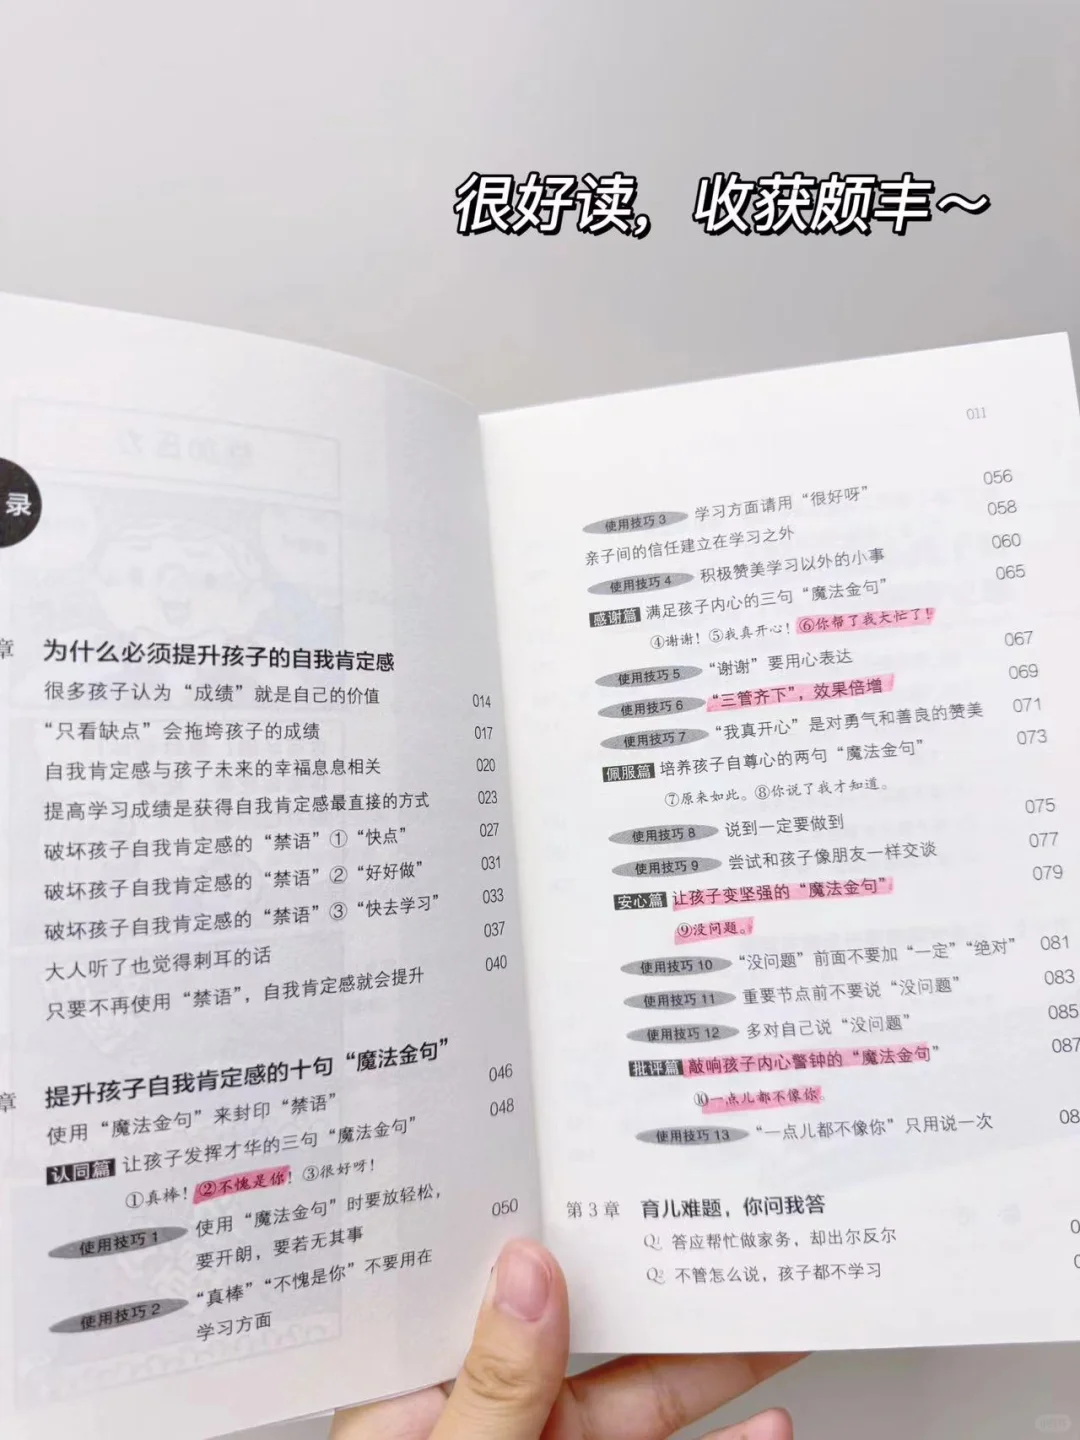 很好读，收获颇丰～
录
章 为什么必须提升孩子的自我肯定感
很多孩子认为“成绩”就是自己的价值 014
“只看缺点”会拖垮孩子的成绩 017
自我肯定感与孩子未来的幸福息息相关 020
提高学习成绩是获得自我肯定感最直接的方式 023
破坏孩子自我肯定感的“禁语”①“快点” 027
破坏孩子自我肯定感的“禁语”②“好好做” 031
破坏孩子自我肯定感的“禁语”③“快去学习” 033
大人听了也觉得刺耳的话 037
只要不再使用“禁语”，自我肯定感就会提升 040
章 提升孩子自我肯定感的十句“魔法金句”
使用“魔法金句”来封印“禁语” 046
认同篇 让孩子发挥才华的三句“魔法金句” 048
①真棒！②不愧是你！③很好呀！
使用技巧 1 使用“魔法金句”时要放轻松，
要开朗，要若无其事 050
使用技巧 2 “真棒”“不愧是你”不要用在
学习方面
011
使用技巧 3 学习方面请用“很好呀” 056
亲子间的信任建立在学习之外 058
使用技巧 4 积极赞美学习以外的小事 060
感谢篇 满足孩子内心的三句“魔法金句” 065
④谢谢！⑤我真开心！⑥你帮了我大忙了！
使用技巧 5 “谢谢”要用心表达 067
使用技巧 6 “三管齐下”，效果倍增 069
使用技巧 7 “我真开心”是对勇气和善良的赞美 071
佩服篇 培养孩子自尊心的两句“魔法金句” 073
⑦原来如此。⑧你说了我才知道。
使用技巧 8 说到一定要做到 075
使用技巧 9 尝试和孩子像朋友一样交谈 077
安心篇 让孩子变坚强的“魔法金句” 079
⑨没问题。
使用技巧 10 “没问题”前面不要加“一定”“绝对” 081
使用技巧 11 重要节点前不要说“没问题” 083
使用技巧 12 多对自己说“没问题” 085
批评篇 敲响孩子内心警钟的“魔法金句” 087
⑩一点儿都不像你。
使用技巧 13 “一点儿都不像你”只用说一次 08
第 3 章 育儿难题，你问我答
Q1 答应帮忙做家务，却出尔反尔 0
Q2 不管怎么说，孩子都不学习